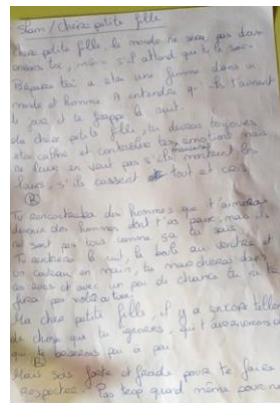 Slam / Chère petite fille
Chère petite fille, le monde ne sera pas dou
envers toi, même s'il attend que tu le sois
Prépare toi a etre une femme dans un
monde et homme A entendre qu'ils t'aiment
le jour et te frappe la nuit.
Ma chère petite fille, tu devras toujours
etre calme et controler tes emotions mais
ne leurs en veut pas s'ils montrent les
leurs, s'ils cassent tout et cris
(B)
Tu rencontrera des hommes que t'aimeras
devant des hommes dont t'as peur, mais ils
ne sont pas tous comme ça tu sais
Tu rentrera la nuit, la boule au ventre et
un cadeau en main, tu marcheras dans
les rues et avec un peu de chance tu ne
feras pas
Ma chere petite fille, il y a encore telleme
de chose que tu ignores, qui t'
qui te peu a peu
(B)
Mais sois forte et froide pour te faire
respecter. Pas trop quand même pour ne